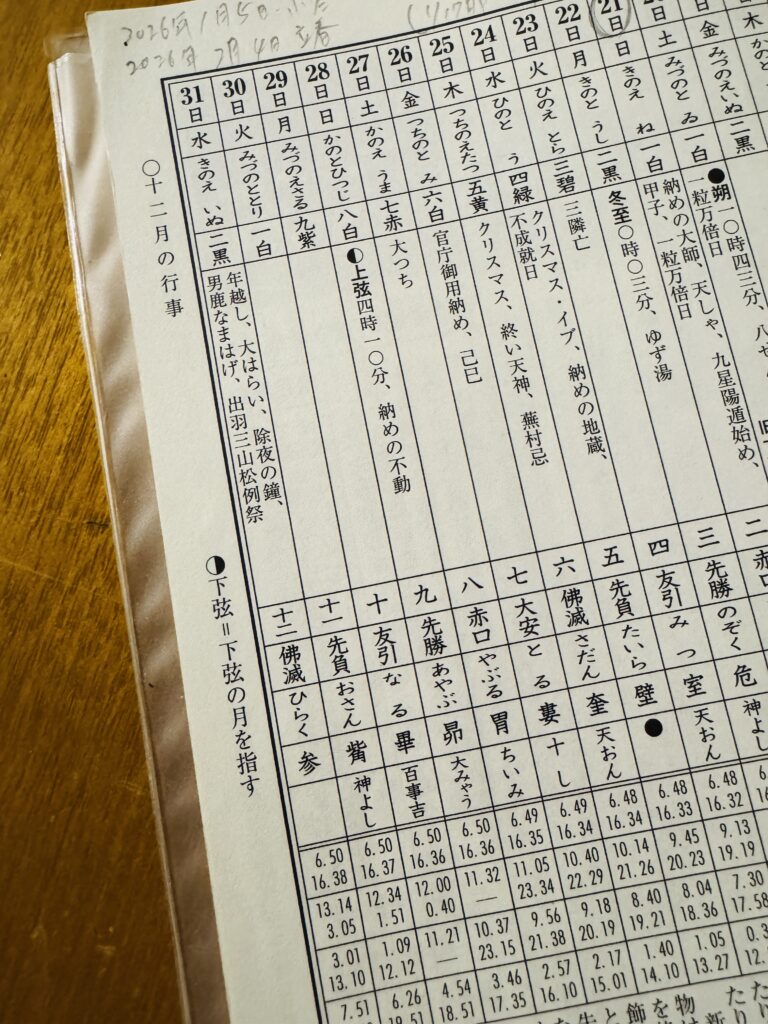 2026年1月5日 小寒
2026年2月4日 立春
金 みづのえいぬ 二黒
土 みづのと ゐ 一白 ●朔一〇時四三分、
一粒万倍日
21日 日 きのえ ね 一白 納めの大師、天しゃ、九星陽遁始め、
甲子、一粒万倍日 二 赤口
22日 月 きのと うし 二黒 冬至〇時〇三分、ゆず湯 三 先勝 のぞく 危 神よし
23日 火 ひのえ とら 三碧 三隣亡 四 友引 みつ 室 天おん 6.48 16.32 9.13 19.19 7.30 17.58
24日 水 ひのと う 四緑 クリスマス・イブ、納めの地蔵、
不成就日 五 先負 たいら 壁 ● 6.48 16.33 9.45 20.23 8.04 18.36 1.05 13.27
25日 木 つちのえたつ 五黄 クリスマス、終い天神、蕪村忌 六 佛滅 さだん 奎 天おん 6.48 16.34 10.14 21.26 8.40 19.21 1.40 14.10
26日 金 つちのと み 六白 官庁御用納め、己巳 七 大安 とる 婁 十し 6.49 16.34 10.40 22.29 9.18 20.19 2.17 15.01
27日 土 かのえ うま 七赤 大つち 八 赤口 やぶる 胃 ちいみ 6.49 16.35 11.05 23.34 9.56 21.38 2.57 16.10
28日 日 かのとひつじ 八白 ◐上弦四時一〇分、納めの不動 九 先勝 あやぶ 昴 大みゃう 6.50 16.36 11.32 — 10.37 23.15 3.46 17.35
29日 月 みづのえさる 九紫 十 友引 なる 畢 百事吉 6.50 16.36 12.00 0.40 11.21 — 4.54 18.51
30日 火 みづのととり 一白 十一 先負 おさん 觜 神よし 6.50 16.37 12.34 1.51 1.09 12.12 6.26
31日 水 きのえ いぬ 二黒 年越し、大はらい、除夜の鐘、
男鹿なまはげ、出羽三山松例祭 十二 佛滅 ひらく 参 6.50 16.38 13.14 3.05 3.01 13.10 7.51
〇十二月の行事
◑下弦＝下弦の月を指す